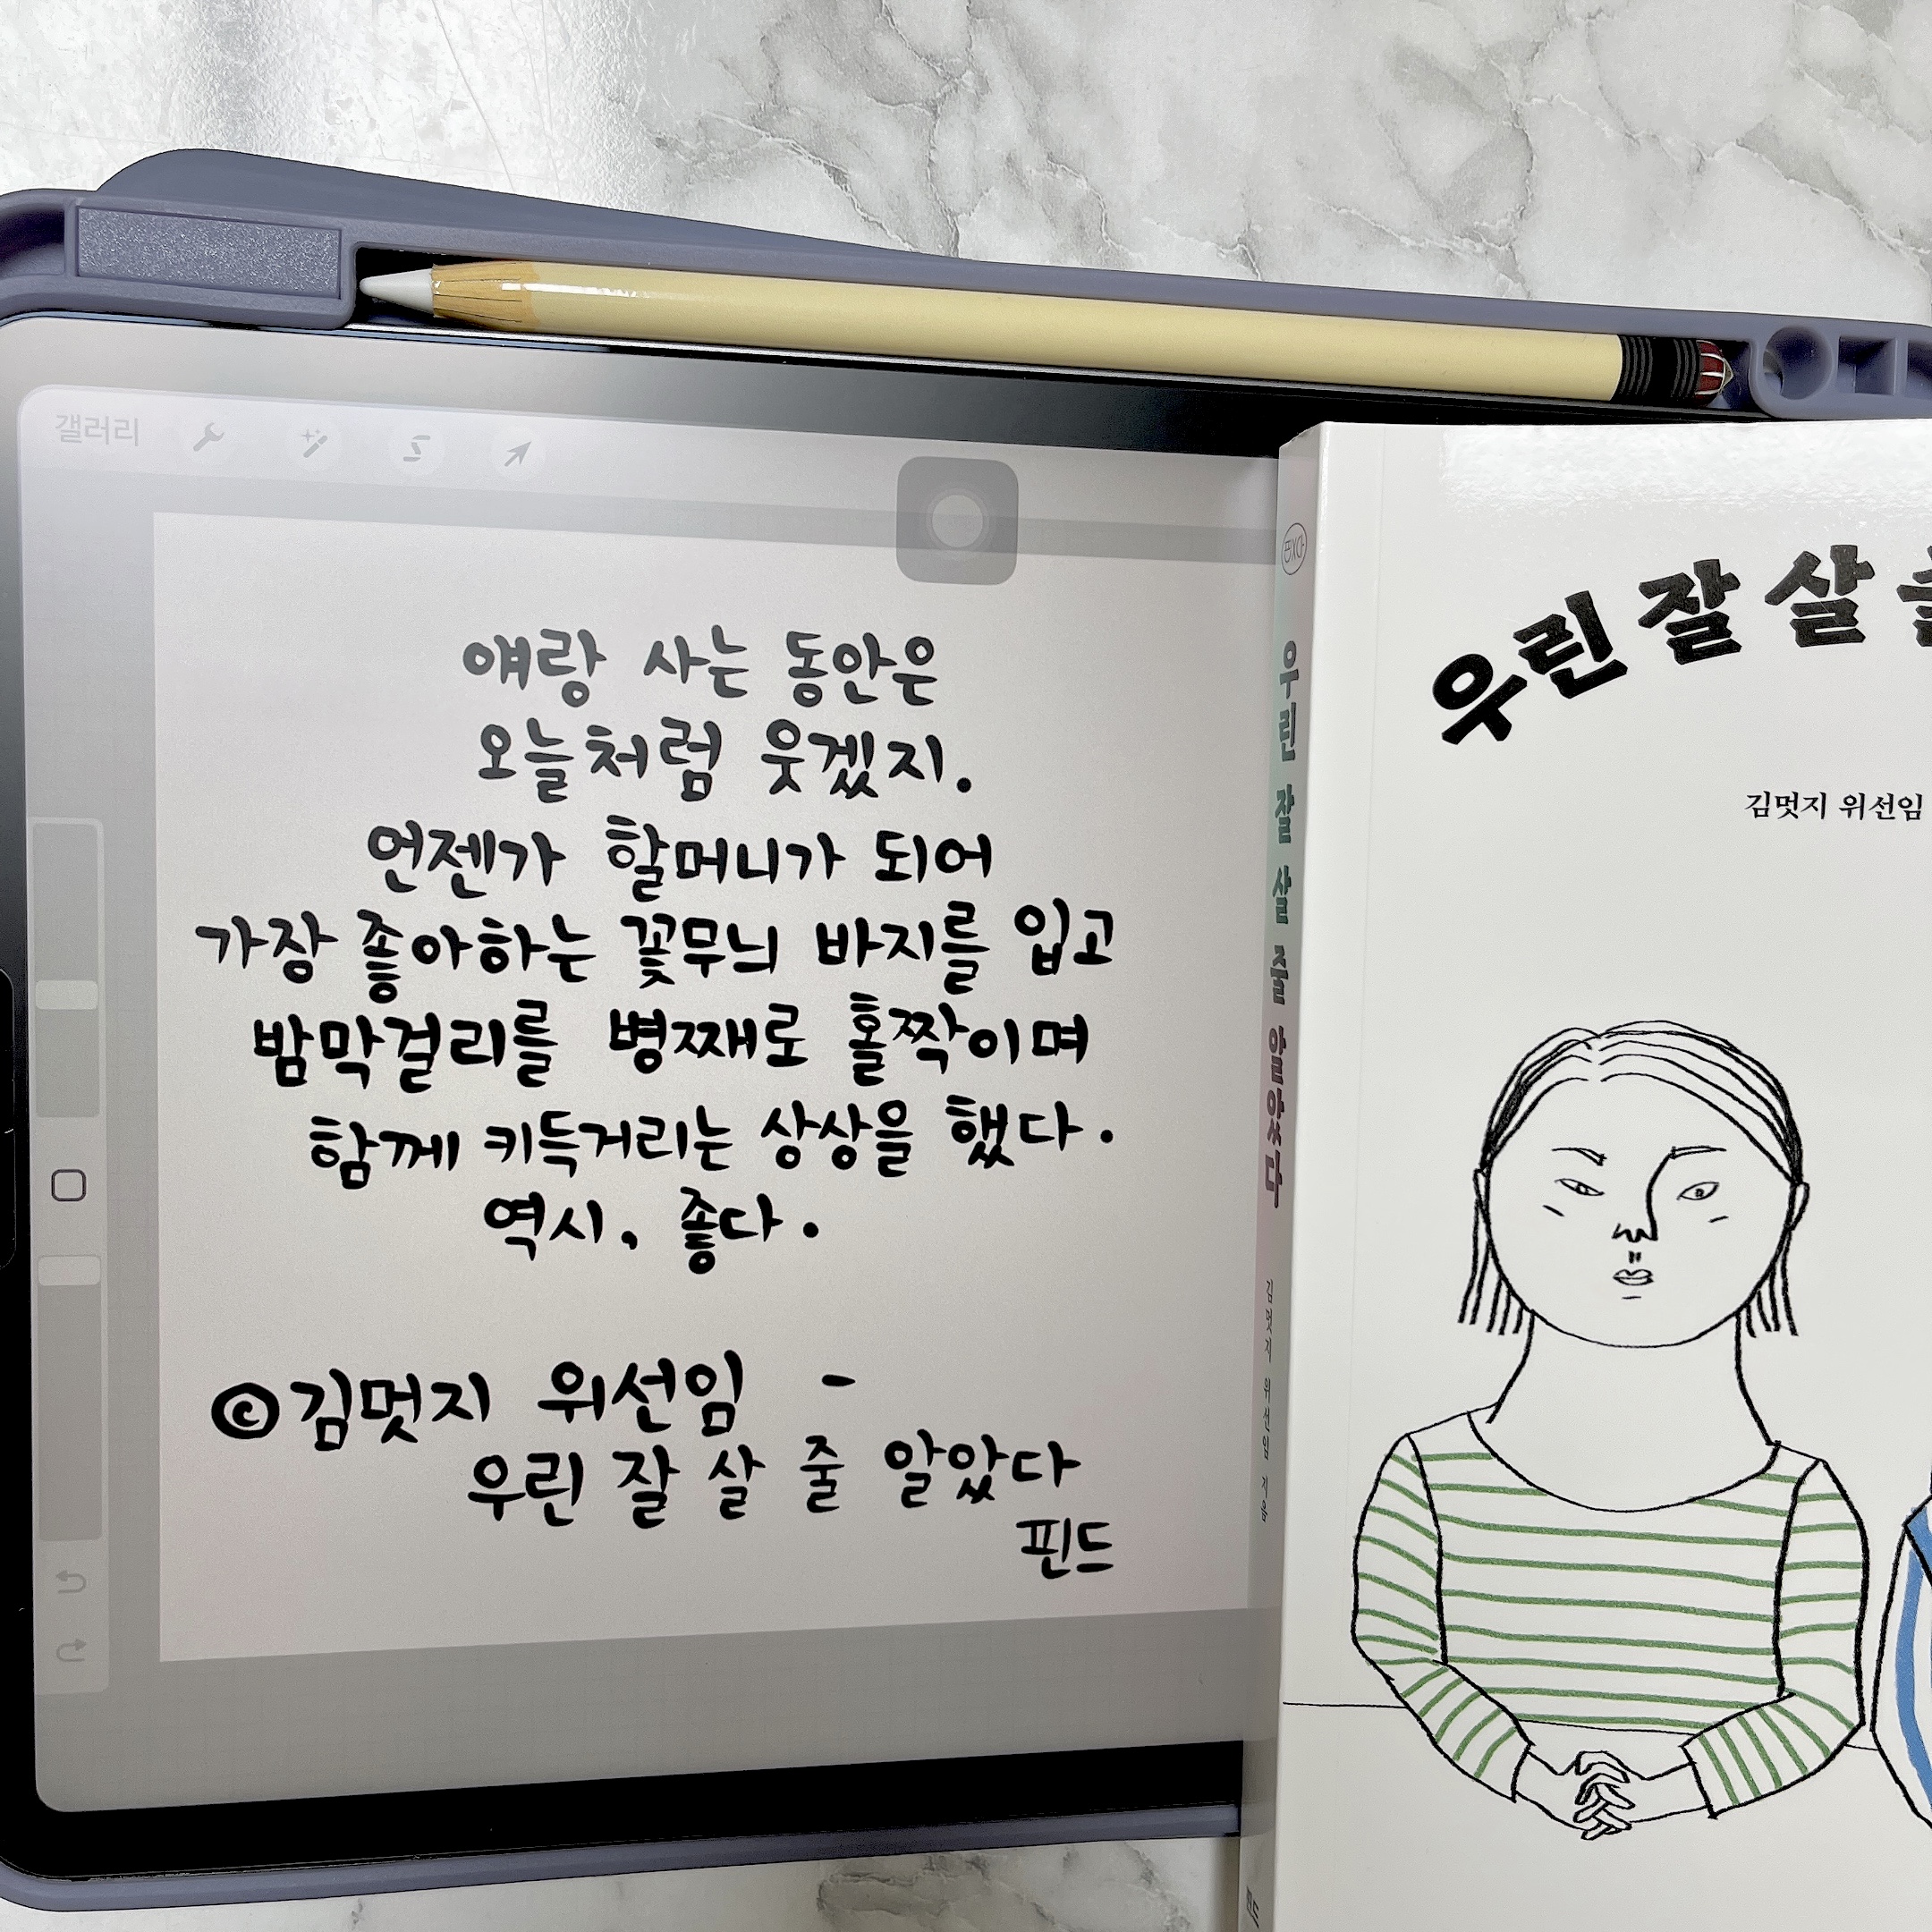 갤러리
얘랑 사는 동안은
오늘처럼 웃겠지.
언젠가 할머니가 되어
가장 좋아하는 꽃무늬 바지를 입고
밤막걸리를 병째로 홀짝이며
함께 키득거리는 상상을 했다.
역시, 좋다.
©김멋지 위선임 -
우린 잘 살 줄 알았다
핀드
우린 잘 살 줄 알았다
김멋지 위선임 지음
우린 잘 살
김멋지 위선임